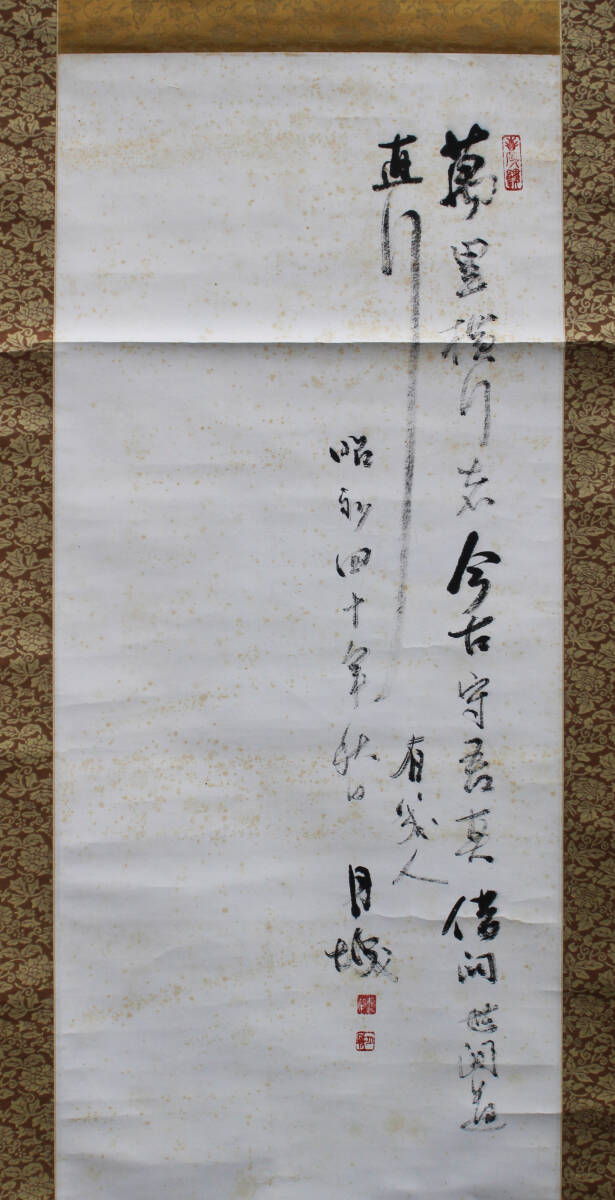 萬里横行志今古守吾真借問世間道
直行有幾人
昭和四十年秋日 月城